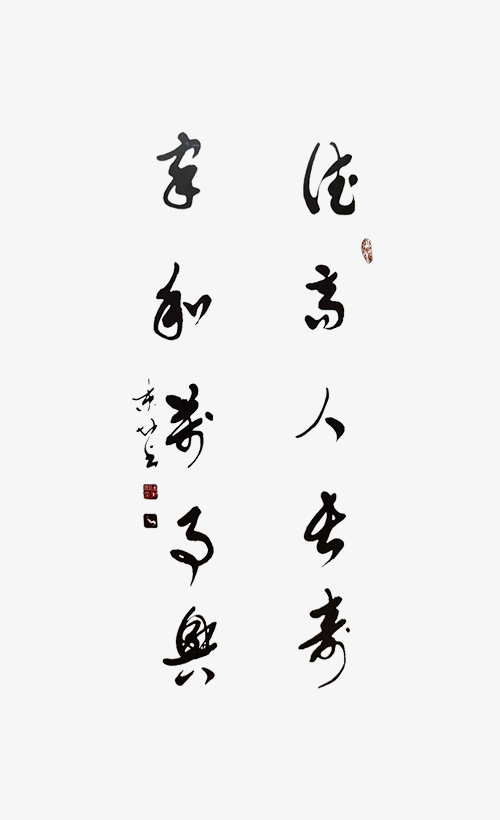 德高人长寿
家和万事兴